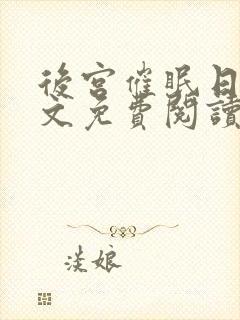 後宮催眠日
文免費閱讀
淡娘